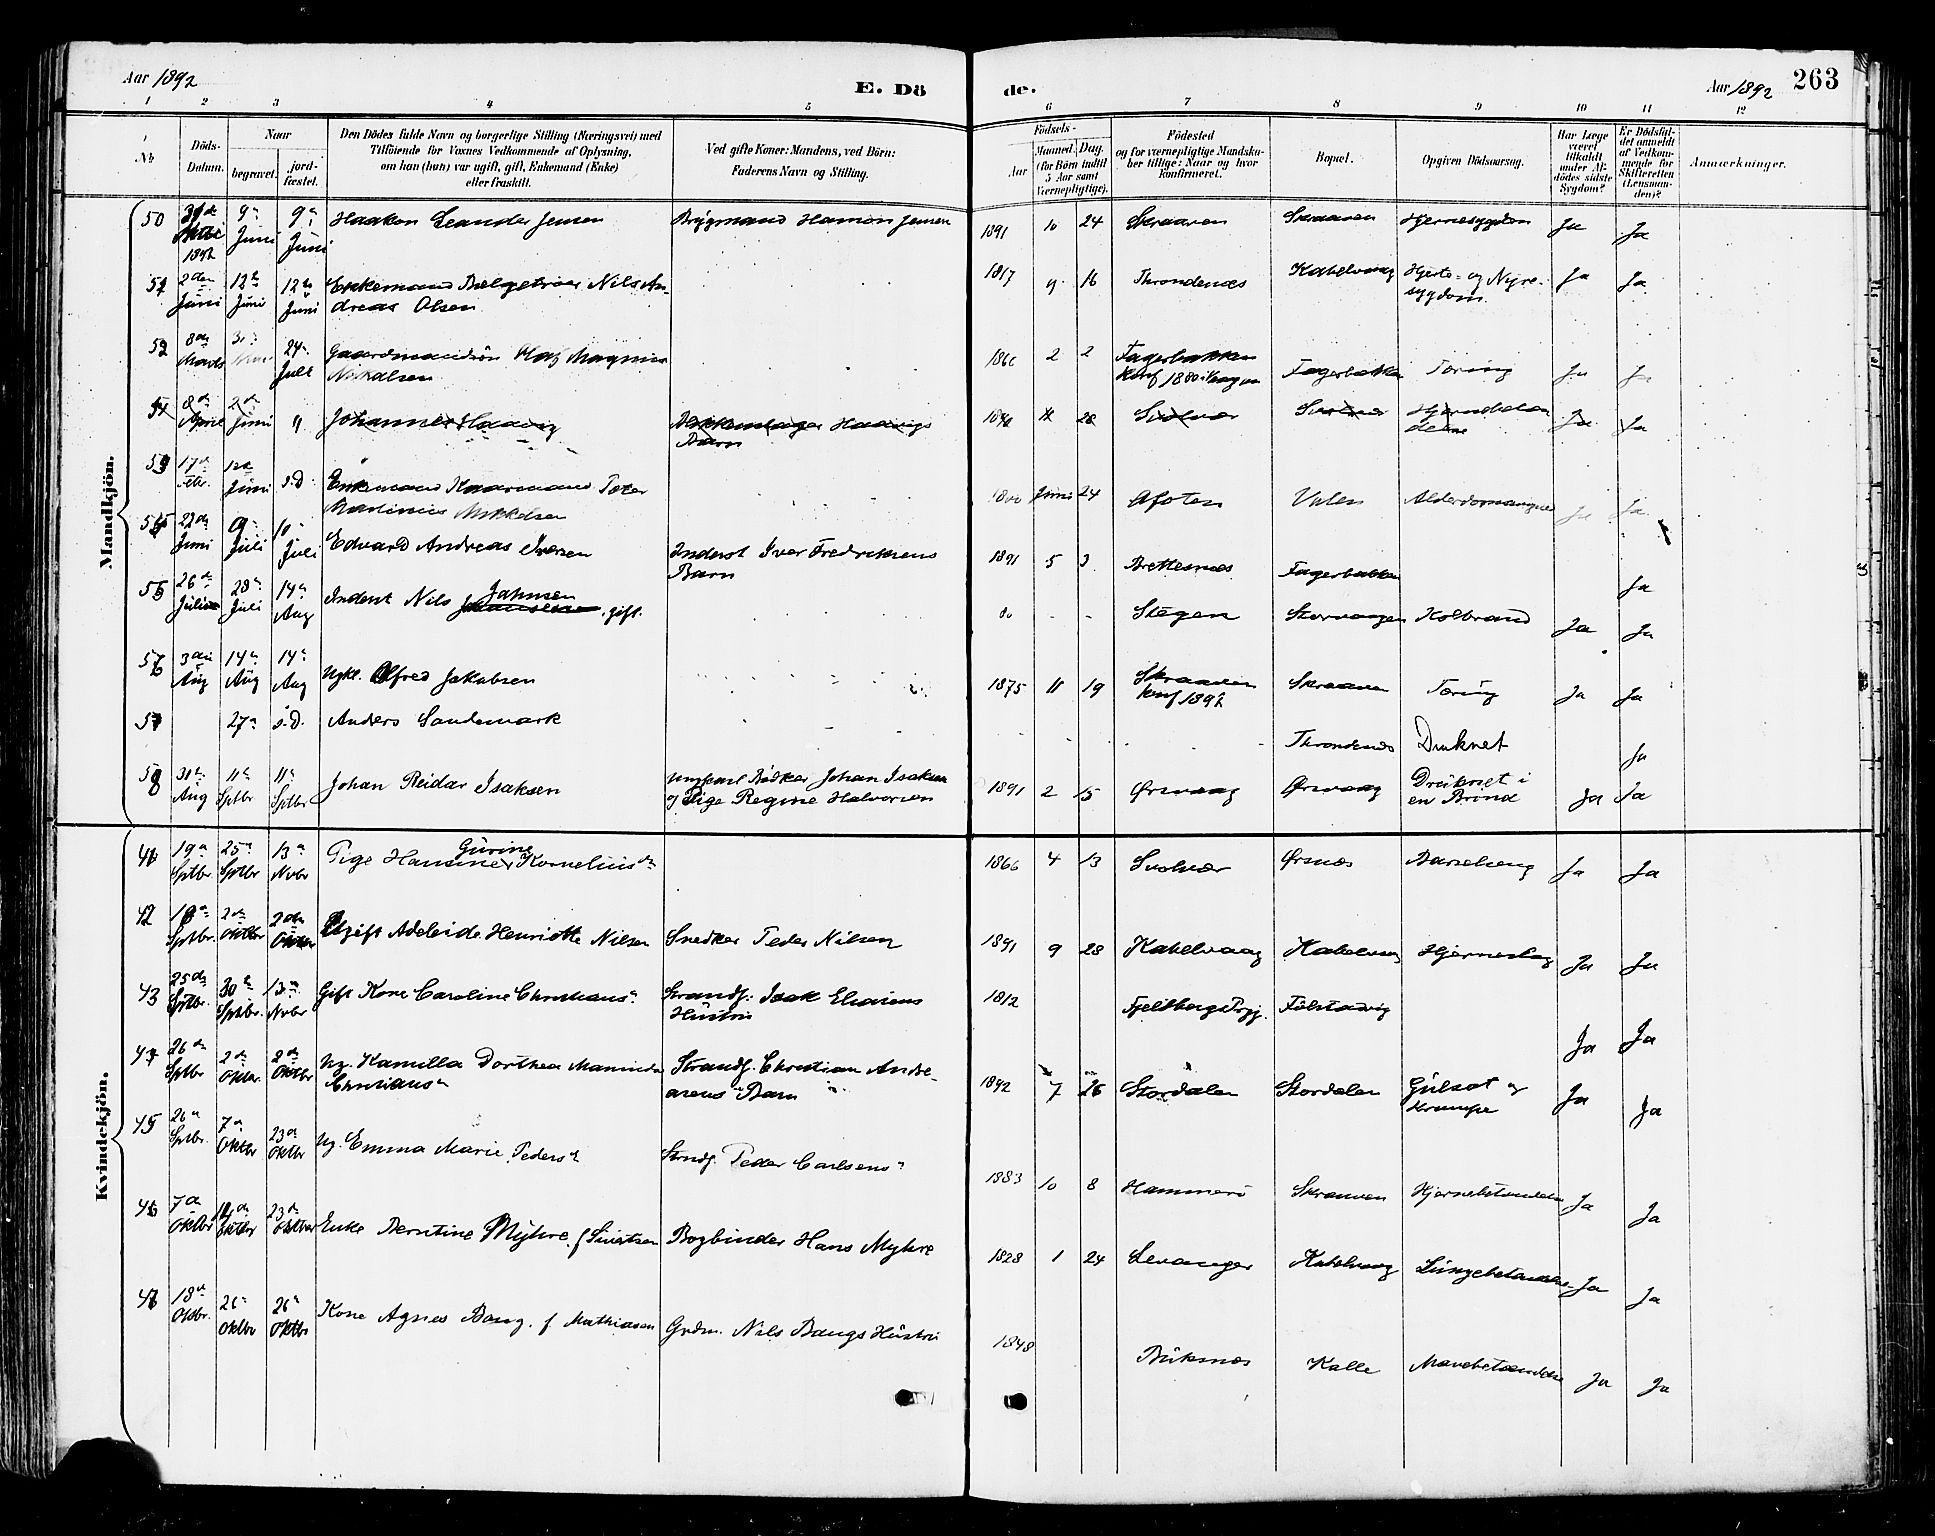 Aar 1892
E. Dö
de.
Aar 1892
263
1 2 3 4 5 6 7 8 9 10 11 12
No
Döds-
Datum.
Naar
begravet.
jord-
fæstet.
Den Dödes fulde Navn og borgerlige Stilling (Næringsvei) med
Tilföiende for Voxnes Vedkommende af Oplysning,
om han (hun) var ugift, gift, Enkemand (Enke)
eller fraskilt.
Ved gifte Koner: Mandens, ved Börn:
Faderens Navn og Stilling.
Födsels-
Aar
Maaned. Dag.
(for Börn indtil
5 Aar samt
Værnepligtige).
Födested
og for værnepligtige Mandska-
ber tillige: Naar og hvor
konfirmeret.
Bopæl.
Opgiven Dödsaarsag.
Har Læge
været
tilkaldt
under Af-
dödes sidste
Sygdom?
Er Dödsfal-
det anmeldt
af Vedkom-
mende for
Skifteretten
(Lensman-
den)?
Anmærkninger.
Mandkjön.
50 31de 9n Juni 9n Juni Haakon Leander Jensen Bÿgmand Hamon Jensen 1891 10 24 Skraaven Skraaven Hjernesygdom Ja Ja
51 2den Juni 12te Juni 12te Juni Enkemand Nils An-
dreas Olsen 1817 9 16 Throndenæs Kabelvaag Hjerte- og Nyre-
sygdom Ja Ja
52 8de Marts 24n Juli Gaardmandsön Olaf Magnus
Nikolsen 2 2 Fagerbakken
Konf 1880 i Vaagan Fagerbakken Tæring Ja Ja
8de April 2de Juni " Johannes Haavig Haavigs
Barn 28 Svolvær Svolvær Ja Ja
17de Febr. 12te Juni s.D. Enkemand Kaarmand Peter
Martinius Mikkelsen Juni 24 Afoten Valen Ja Ja
22de Juni 9n Juli 10n Juli Edvard Andreas Iversen Inderst Iver Fredriksens
Barn 1891 5 3 Brettesnæs Fagerbakken Ja
26de Juli 28n Juli 14n Aug Inderst Nils Jahnsen, gift. 80 - - Stegen Storvaagen Kolbrand Ja Ja
3die Aug 14n Aug 14n Aug Ugkl. Alfred Jakobsen 1875 11 19 Skraaven
konf 1892 Skraaven Tæring Ja Ja
57 27n s.D. Anders Sandemark Throndenæs Druknet Ja
58 31te Aug 11te Sptbr 11te Sptbr Johan Reidar Isaksen Ungkarl Bödker Johan Isaksen
og Pige Regine Halvorsen 1891 2 15 Örsvaag Örsvaag Drüknet i
en Brönd Ja Ja
Kvindekjön.
41 19n Sptbr 25n Sptbr 13n Novbr Pige Hansine Gürine Kornelius dr 1866 4 13 Svolvær Örsnæs Barselseng Ja Ja
42 Sptbr. 2den Oktbr 2den Oktbr Ugift Adeleide Henriette Nilsen Snedker Peder Nilsen 1891 9 28 Kabelvaag Kabelvaag Hjerneslag Ja Ja
43 25de Sptbr. 30te Sptbr. 13n Novbr Gift Kone Caroline Christians n Strandf: Isak Eliasens
Hüstru 1812 Fjeldberg Prgj. Fölstadvig Ja Ja
44 26de Sptbr 2de Oktbr. 2de Oktbr Ug. Kamilla Dorthea
Christians n Strandf. Christian Andre-
asens Barn 1892 7 26 Stordalen Stordalen Gülsot og
Krampe Ja Ja
45 26n Sptbr. 7n Oktbr 23n Oktbr Ug. Emma Marie Peders n Strandf. Peder Carlsens n 1883 10 8 Hammerö Skraaven Hjernebetændelse Ja Ja
46 7n Oktbr Oktbr 23de Oktbr Enke Berntine Myhre, f Sivertsen Bogbinder Hans Myhre 1828 1 24 Levanger Kabelvaag Lüngebetændelse Ja Ja
47 18n Oktbr. 26n Oktbr 26n Oktbr Kone Agnes Bang, f Mathiasen Grdm. Nils Bangs Hüstru 1848 Büksnæs Kalle Mavebetændelse Ja Ja